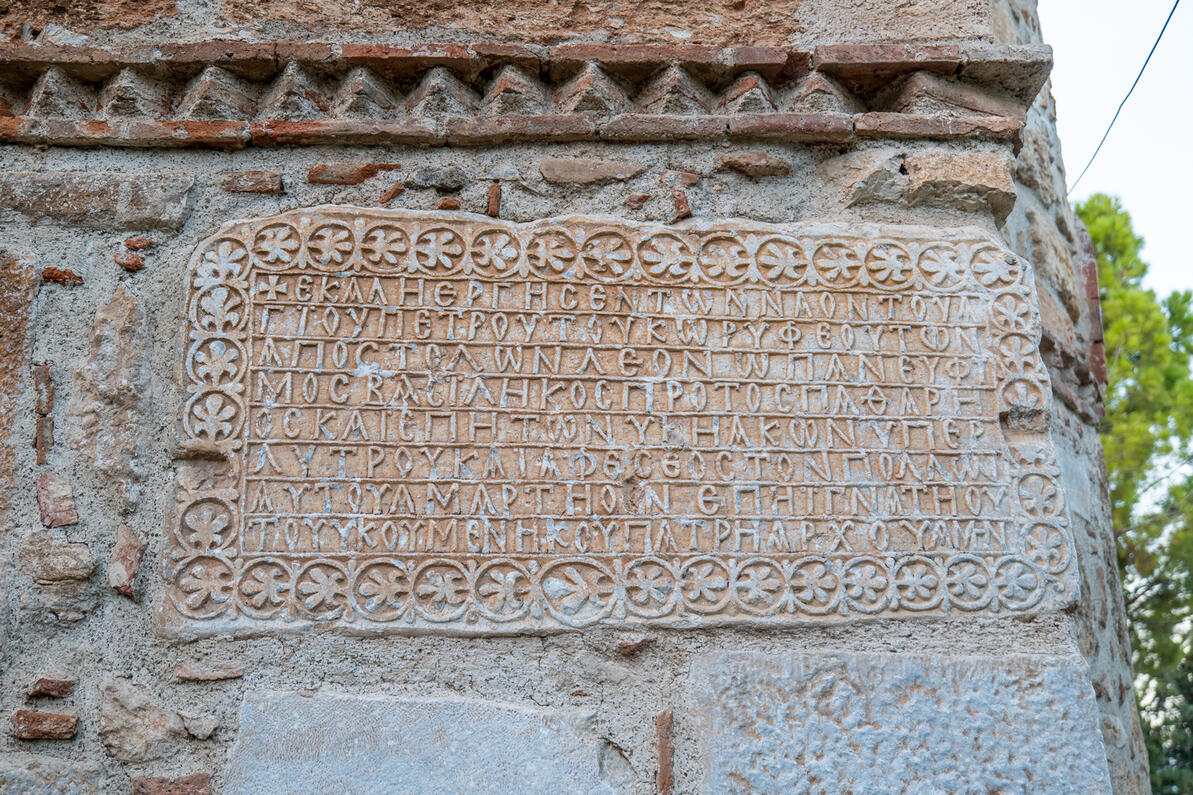 + ΕΚΑΛΗΕΡΓΗΣΕΝΤΩΝΝΑΟΝΤΟΥΑ
ΓΙΟΥΠΕΤΡΟΥΤΟΥΚΩΡΥΦΕΟΥΤΩΝ
ΑΠΟΣΤΟΛΩΝΛΕΟΝΩΠΑΝΕΥΦΙ
ΜΟΣΒΑΣΙΛΗΚΟΣΠΡΟΤΟΣΠΑΘΑΡΗ
ΟΣΚΑΙΕΠΗΤΩΝΥΚΗΑΚΩΝΥΠΕΡ
ΛΥΤΡΟΥΚΑΙΑΦΕΣΕΟΣΤΟΝΠΟΛΛΩΝ
ΑΥΤΟΥΑΜΑΡΤΗΟΝΕΠΗΙΓΝΑΤΗΟΥ
ΤΟΥΥΚΟΥΜΕΝΗΚΟΥΠΑΤΡΗΑΡΧΟΥΑΜΗΝ